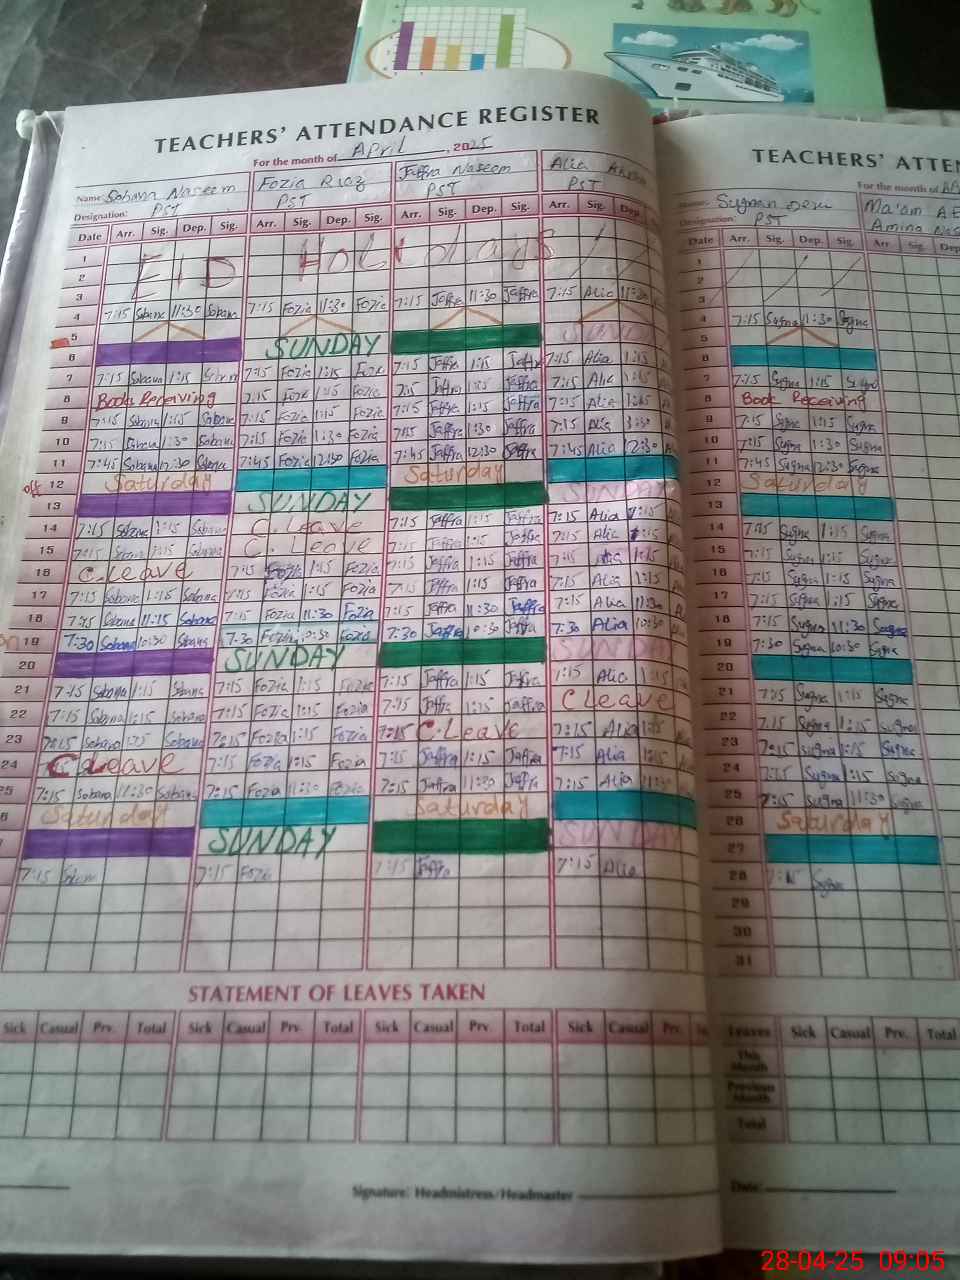 TEACHERS' ATTENDANCE REGISTER
For the month of April, 2025
Name: Sobana Naseem Fozia Riaz Jaffra Naseem Alia
Designation: PST PST PST PST
Date Arr. Sig. Dep. Sig. Arr. Sig. Dep. Sig. Arr. Sig. Dep. Sig. Arr. Sig. Dep.
1
2 EID Holidays
3
4 7:15 Sobana 11:30 Sobana 7:15 Fozia 11:30 Fozia 7:15 Jaffra 11:30 Jaffra 7:15 Alia 11:30
5
6 SUNDAY SUNDAY
7 7:15 Sobana 1:15 7:15 Fozia 1:15 Fozia 7:15 Jaffra 1:15 Jaffra 7:15 Alia 1:15
8 Book Receiving 7:15 Fozia 1:15 Fozia 7:15 Jaffra 1:15 Jaffra 7:15 Alia 1:15
9 7:15 Sobana 1:15 Sobana 7:15 Fozia 1:15 Fozia 7:15 Jaffra 1:15 Jaffra 7:15 Alia 1:15
10 7:15 Sobana 1:30 Sobana 7:15 Fozia 1:30 Fozia 7:15 Jaffra 1:30 Jaffra 7:15 Alia
11 7:45 Sobana 12:30 Sobana 7:45 Fozia 12:30 Fozia 7:45 Jaffra 12:30 Jaffra 7:45 Alia 12:30
off 12 Saturday Saturday
13 SUNDAY SUNDAY
14 7:15 Sobana 1:15 Sobana C. Leave 7:15 Jaffra 1:15 Jaffra 7:15 Alia 1:15
15 7:15 Sobana 1:15 Sobana C. Leave 7:15 Jaffra 1:15 Jaffra 7:15 Alia 1:15
16 C. Leave 7:15 Fozia 1:15 Fozia 7:15 Jaffra 1:15 Jaffra 7:15 Alia 1:15
17 7:15 Sobana 1:15 Sobana 7:15 Fozia 1:15 Fozia 7:15 Jaffra 1:15 Jaffra 7:15 Alia 1:15
18 7:15 Sobana 11:15 Sobana 7:15 Fozia 11:30 Fozia 7:15 Jaffra 11:30 Jaffra 7:15 Alia 11:30
on 19 7:30 Sobana 10:30 Sobana 7:30 Fozia 10:30 Fozia 7:30 Jaffra 10:30 Jaffra 7:30 Alia 10:30
20 SUNDAY SUNDAY
21 7:15 Sobana 1:15 Sobana 7:15 Fozia 1:15 Fozia 7:15 Jaffra 1:15 Jaffra 7:15 Alia 1:15
22 7:15 Sobana 1:15 Sobana 7:15 Fozia 1:15 Fozia 7:15 Jaffra 1:15 Jaffra C Leave
23 7:15 Sobana 1:15 Sobana 7:15 Fozia 1:15 Fozia 7:15 C. Leave 7:15 Alia 1:15
24 C Leave 7:15 Fozia 1:15 Fozia 7:15 Jaffra 1:15 Jaffra 7:15 Alia 1:15
25 7:15 Sobana 11:30 Sobana 7:15 Fozia 11:30 Fozia 7:15 Jaffra 11:30 Jaffra 7:15 Alia 11:30
Saturday Saturday
SUNDAY SUNDAY
7:15 7:15 Fozia 7:15 Jaffra 7:15 Alia
STATEMENT OF LEAVES TAKEN
Sick Casual Prv. Total Sick Casual Prv. Total Sick Casual Prv. Total Sick Casual Prv.
Signature: Headmistress/Headmaster
TEACHERS' ATTEN
For the month of
Name: Ma'am
Designation: PST Amina
Date Arr. Sig. Dep. Sig. Arr Sig. Dep
1
2
3
4 7:15 Sugna 11:30 Sugna
5
6
7 7:15 Sugna 1:15 Sugna
8 Book Receiving
9 7:15 Sugna 1:15 Sugna
10 7:15 Sugna 1:30 Sugna
11 7:45 Sugna 12:30 Sugna
12 Saturday
13
14 7:15 Sugna 1:15 Sugna
15 7:15 Sugna 1:15 Sugna
16 7:15 Sugna 1:15 Sugna
17 7:15 Sugna 1:15 Sugna
18 7:15 Sugna 11:30 Sugna
19 7:30 Sugna 10:30 Sugna
20
21 7:15 Sugna 1:15 Sugna
22 7:15 Sugna 1:15 Sugna
23 7:15 Sugna 1:15 Sugna
24 7:15 Sugna 1:15 Sugna
25 7:15 Sugna 11:30 Sugna
26 Saturday
27
28 7:15 Sugna
29
30
31
Leaves Sick Casual Prv. Total
This Month
Previous Month
Total
Date:
28-04-25 09:05